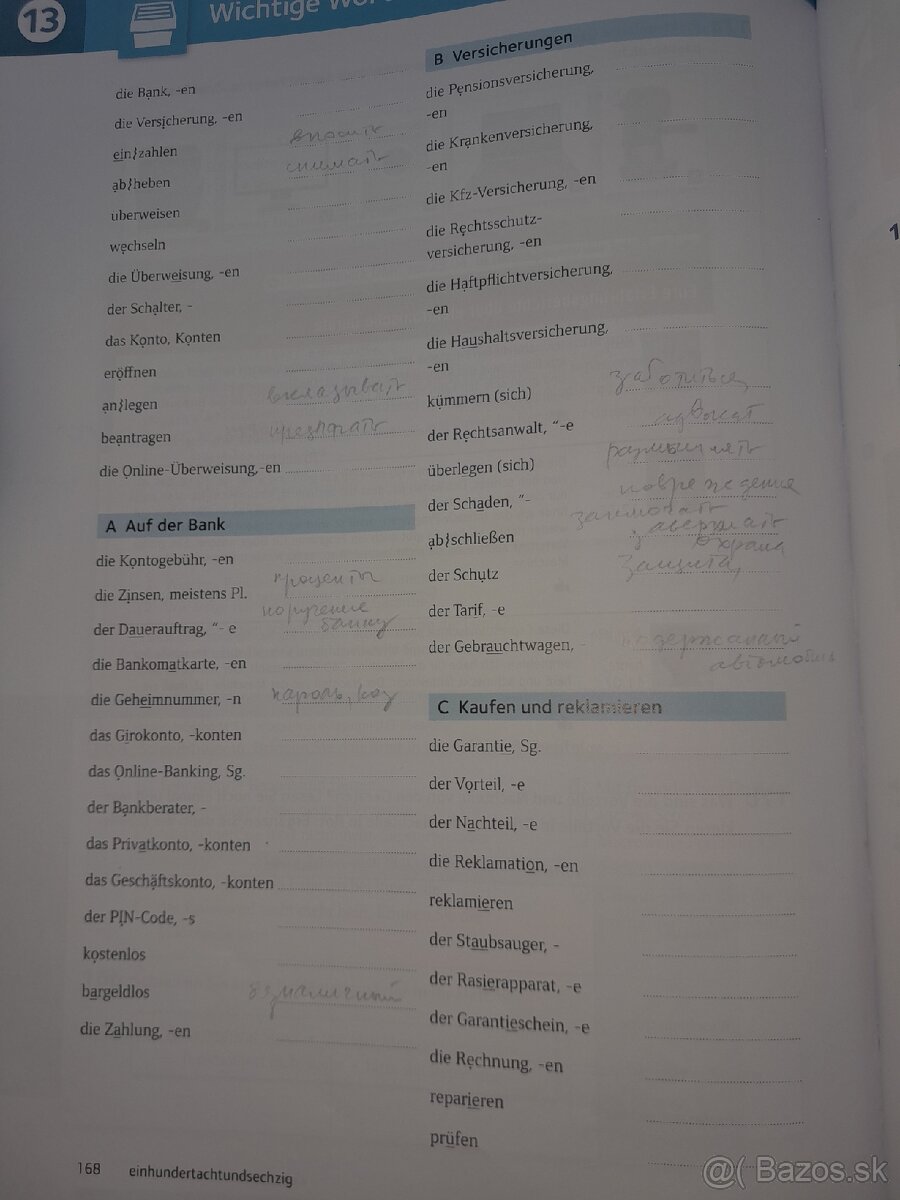 13 Wichtige
die Bank, -en
die Versicherung, -en
ein}zahlen вносить
ab}heben снимать
überweisen
wechseln
die Überweisung, -en
der Schalter, -
das Konto, Konten
eröffnen
an}legen вкладывать
beantragen
die Online-Überweisung,-en
A Auf der Bank
die Kontogebühr, -en
die Zinsen, meistens Pl. проценты
der Dauerauftrag, "- e поручение
банку
die Bankomatkarte, -en
die Geheimnummer, -n пароль, код
das Girokonto, -konten
das Online-Banking, Sg.
der Bankberater, -
das Privatkonto, -konten
das Geschäftskonto, -konten
der PIN-Code, -s
kostenlos
bargeldlos безналичный
die Zahlung, -en
168 einhundertachtundsechzig
B Versicherungen
die Pensionsversicherung,
-en
die Krankenversicherung,
-en
die Kfz-Versicherung, -en
die Rechtsschutz-
versicherung, -en
die Haftpflichtversicherung,
-en
die Haushaltsversicherung,
-en
kümmern (sich) заботиться
der Rechtsanwalt, "-e адвокат
überlegen (sich) размышлять
der Schaden, "- повреждение
ab}schließen завершать
der Schutz защита, охрана
der Tarif, -e
der Gebrauchtwagen, - подержанный
автомобиль
C Kaufen und reklamieren
die Garantie, Sg.
der Vorteil, -e
der Nachteil, -e
die Reklamation, -en
reklamieren
der Staubsauger, -
der Rasierapparat, -e
der Garantieschein, -e
die Rechnung, -en
reparieren
prüfen
@( Bazos.sk